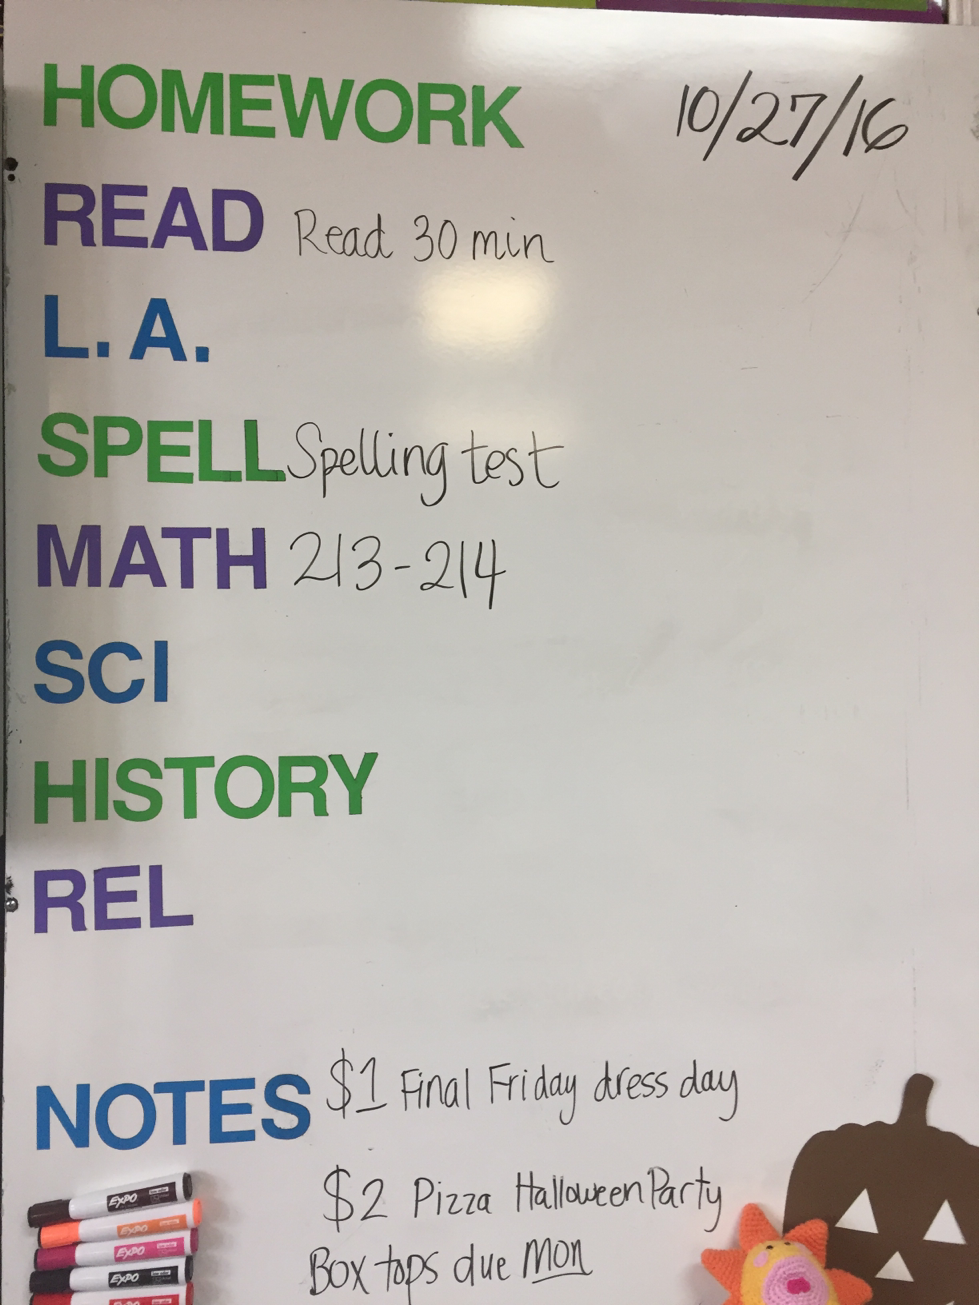 HOMEWORK 10/27/16
READ Read 30 min
L. A.
SPELL Spelling test
MATH 213-214
SCI
HISTORY
REL
NOTES $1 Final Friday dress day
$2 Pizza Halloween Party
Box tops due Mon
EXPO
EXPO
EXPO
EXPO